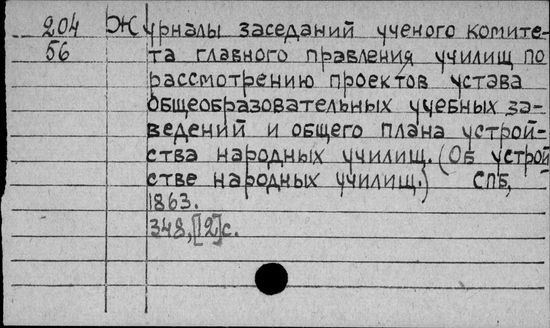 204 Журналы заседаний ученого комите-
56 та главного правления училищ по
рассмотрению проектов устава
общеобразовательных учебных за-
ведений и общего плана устрой-
ства народных училищ. (Об устрой
стве народных училищ.) СПБ,
1863.
348,[12]с.